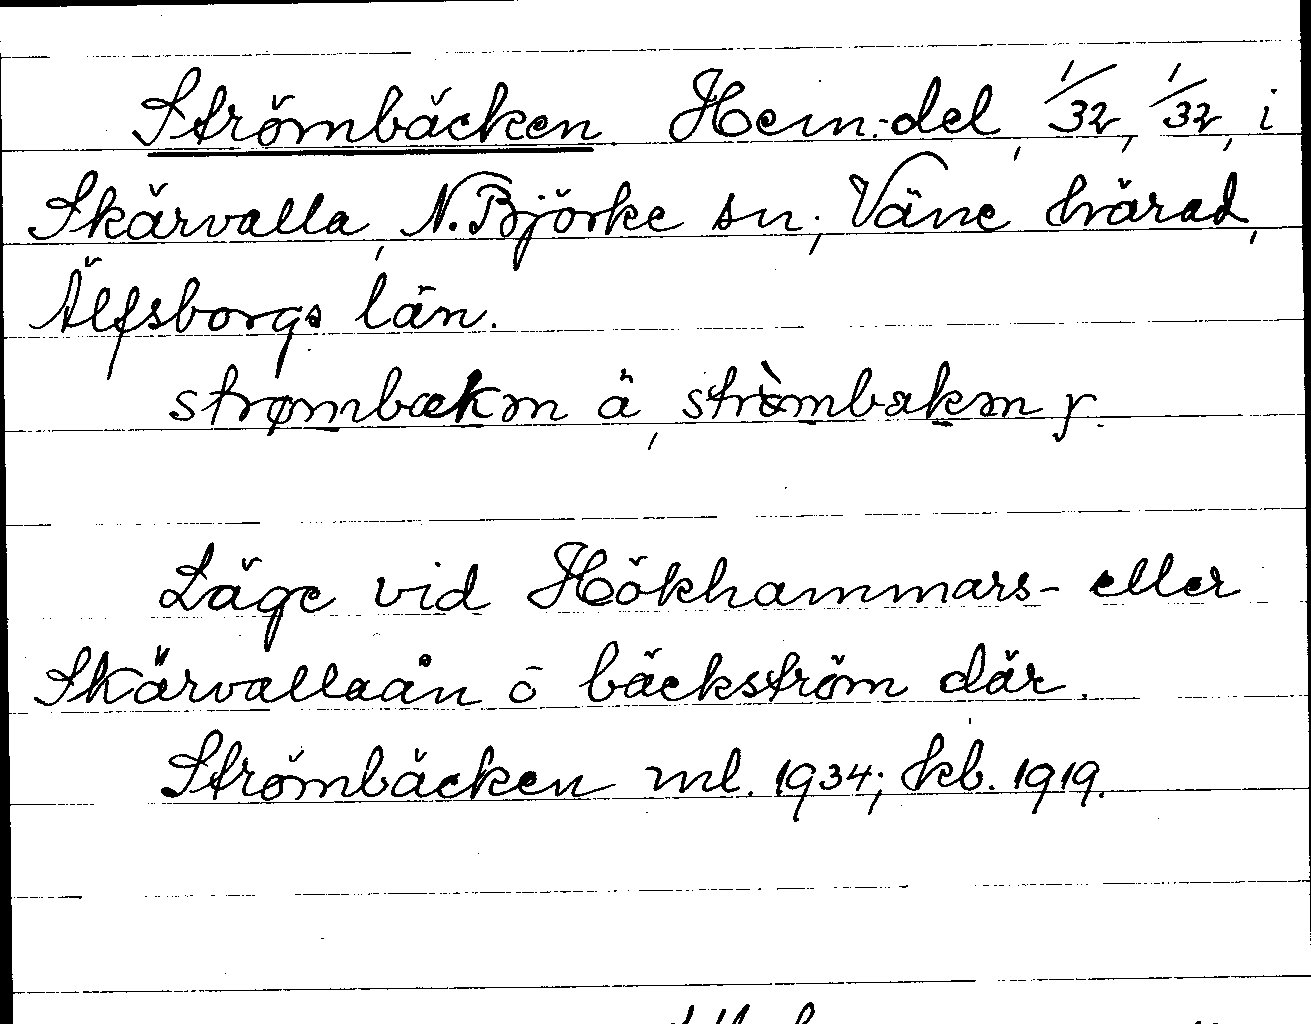 Strömbäcken. Hem.-del, 1/32, 1/32, i
Skärvalla, N. Björke sn; Väne härad,
Älfsborgs län.
strømbækm ä, strømbakm y.
Läge vid Hökhammars- eller
Skärvallaån ō bäckström där.
Strömbäcken ml. 1934; kb. 1919.